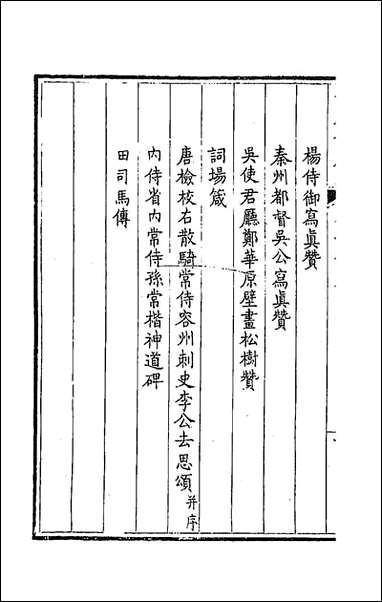 楊侍御寫眞贊
秦州都督吳公寫眞贊
吳使君廳鄭華原壁畫松樹贊
詞場箴
唐檢校右散騎常侍容州刺史李公去思頌并序
內侍省內常侍孫常楷神道碑
田司馬傳